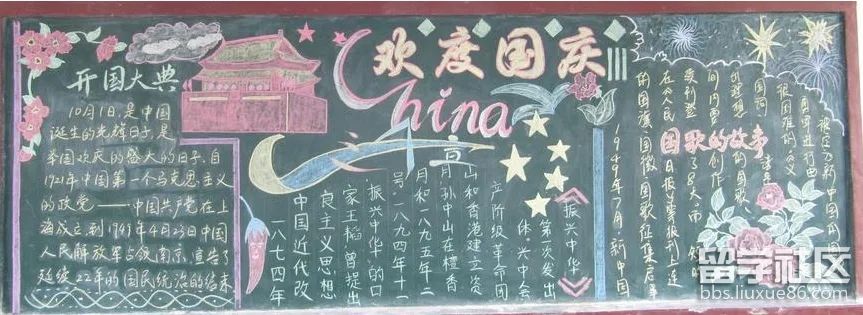 开国大典
10月1日,是中国
诞生的光辉日子,是
举国欢庆的盛大的日子。自
1921年中国第一个马克思主义
的政党——中国共产党在上
海成立,到1949年4月23日中国
人民解放军占领南京,宣告了
延续22年的国民统治的结束
欢度国庆
China
《振兴中华》
第一次发出
立阶级革命团
体。兴中会
山和香港建立资
月,孙中山在檀香
月和一八九五年二
号。一八九四年十一
振兴中华”的口
家王韬曾提出
良主义思想
中国近代改
一八七四年
国歌的故事
1949年7月,新中国
的国旗、国徽、国歌征集启事
在《人民日报》等报刊上连
留学社区
bbs.liuxue86.com